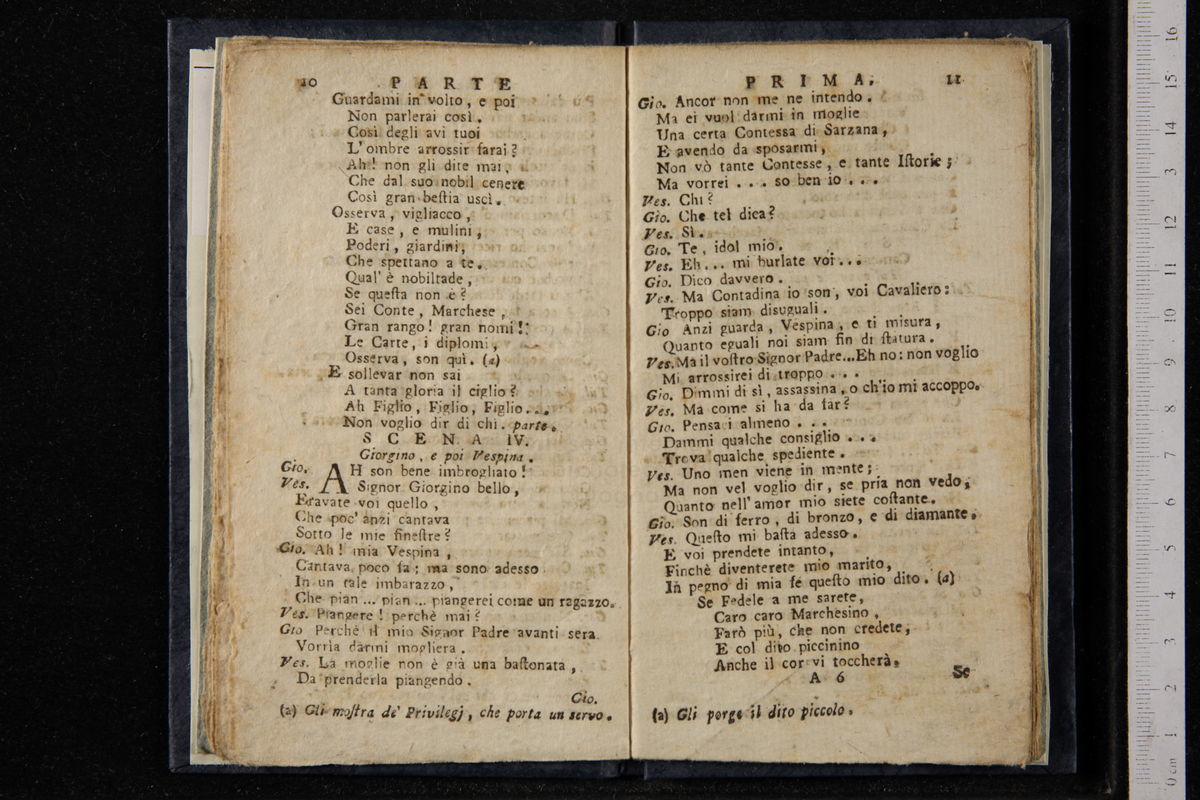 10 PARTE
Guardami in volto, e poi
Non parlerai così.
Così degli avi tuoi
L'ombre arrossir farai?
Ah! non gli dite mai,
Che dal suo nobil cenere
Così gran beſtia uscì.
Osserva, vigliacco,
E case, e mulini,
Poderi, giardini,
Che spettano a te.
Qual' è nobiltade,
Se queſta non è?
Sei Conte, Marchese,
Gran rango! gran nomi!
Le Carte, i diplomi,
Osserva, son quì. (a)
E sollevar non sai
A tanta gloria il ciglio?
Ah Figlio, Figlio, Figlio...
Non voglio dir di chi. parte.
SCENA IV.
Giorgino, e poi Vespina.
Gio. AH son bene imbrogliato!
Ves. Signor Giorgino bello,
Eravate voi quello,
Che poc' anzi cantava
Sotto le mie fineſtre?
Gio. Ah! mia Vespina,
Cantava poco fa; ma sono adesso
In un tale imbarazzo,
Che pian... pian... piangerei come un ragazzo.
Ves. Piangere! perchè mai?
Gio Perchè il mio Signor Padre avanti sera
Vorria darmi mogliera.
Ves. La moglie non è già una baſtonata,
Da prenderla piangendo.
Gio.
(a) Gli moſtra de' Privilegj, che porta un servo.
PRIMA. 11
Gio. Ancor non me ne intendo.
Ma ei vuol darmi in moglie
Una certa Contessa di Sarzana,
E avendo da sposarmi,
Non vò tante Contesse, e tante Iſtorie;
Ma vorrei... so ben io...
Ves. Chi?
Gio. Che tel dica?
Ves. Sì.
Gio. Te, idol mio.
Ves. Eh... mi burlate voi...
Gio. Dico davvero.
Ves. Ma Contadina io son, voi Cavaliero:
Troppo siam disuguali.
Gio Anzi guarda, Vespina, e ti misura,
Quanto eguali noi siam fin di ſtatura.
Ves. Ma il voſtro Signor Padre... Eh no: non voglio
Mi arrossirei di troppo...
Gio. Dimmi di sì, assassina, o ch'io mi accoppo.
Ves. Ma come si ha da far?
Gio. Pensaci almeno...
Dammi qualche consiglio...
Trova qualche spediente.
Ves. Uno men viene in mente;
Ma non vel voglio dir, se pria non vedo,
Quanto nell'amor mio siete coſtante.
Gio. Son di ferro, di bronzo, e di diamante.
Ves. Queſto mi baſta adesso.
E voi prendete intanto,
Finchè diventerete mio marito,
In pegno di mia fé queſto mio dito. (a)
Se Fedele a me sarete,
Caro caro Marchesino,
Farò più, che non credete,
E col dito piccinino
Anche il cor vi toccherà.
A 6 Se
(a) Gli porge il dito piccolo.
0 cm 1 2 3 4 5 6 7 8 9 10 11 12 13 14 15 16